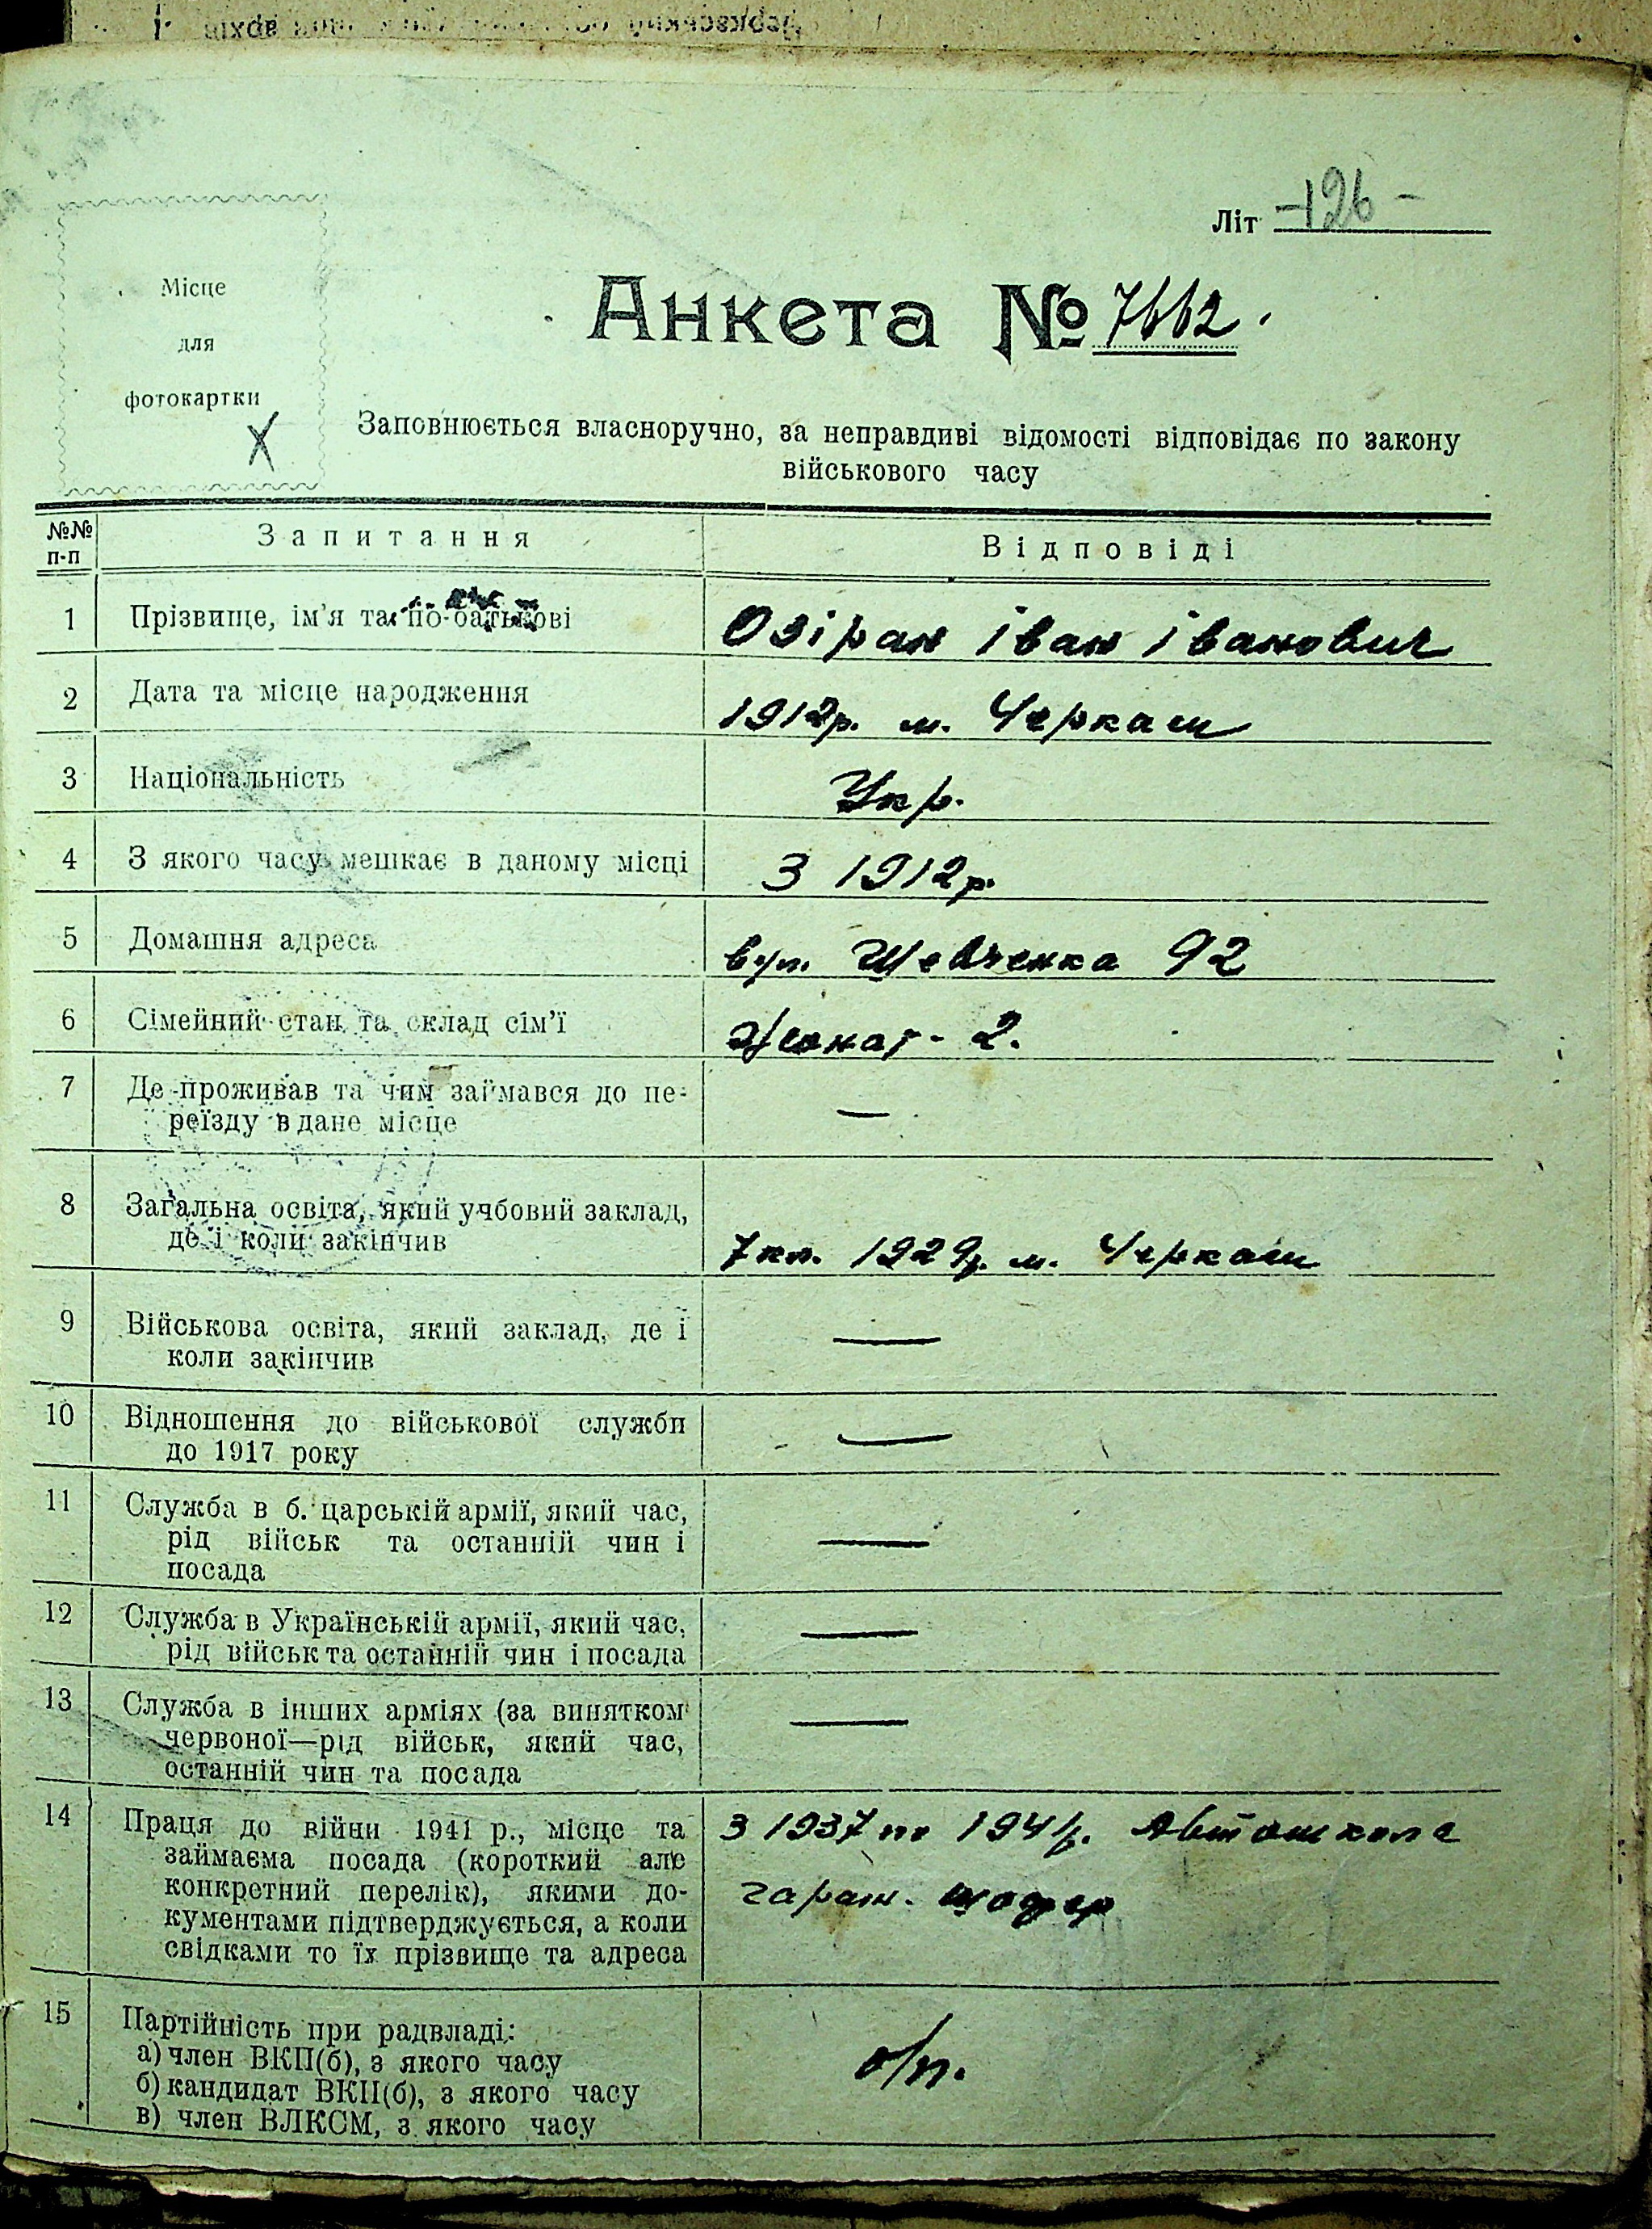 Літ -126-
Місце
для
фотокартки
Анкета № 7662.
Заповнюється власноручно, за неправдиві відомості відповідає по закону
військового часу
№№ п-п Запитання Відповіді
1 Прізвище, ім'я та по-батькові Озіран іван іванович
2 Дата та місце народження 1912р. м. Черкаси
3 Національність Укр.
4 З якого часу мешкає в даному місці З 1912р.
5 Домашня адреса вул. Шевченка 92
6 Сімейний стан та склад сім'ї Жонат - 2.
7 Де проживав та чим займався до пе-
реїзду в дане місце —
8 Загальна освіта, який учбовий заклад,
де і коли закінчив 7 кл. 1929р. м. Черкаси
9 Військова освіта, який заклад, де і
коли закінчив —
10 Відношення до військової служби
до 1917 року —
11 Служба в б. царській армії, який час,
рід військ та останній чин і
посада —
12 Служба в Українській армії, який час,
рід військ та останній чин і посада —
13 Служба в інших арміях (за винятком
червоної—рід військ, який час,
останній чин та посада —
14 Праця до війни 1941 р., місце та
займаєма посада (короткий але
конкретний перелік), якими до-
кументами підтверджується, а коли
свідками то їх прізвище та адреса
З 1937 по 1941р. Автошкола
гараж. шофер
15 Партійність при радвладі:
а) член ВКП(б), з якого часу
б) кандидат ВКП(б), з якого часу
в) член ВЛКСМ, з якого часу
б/п.